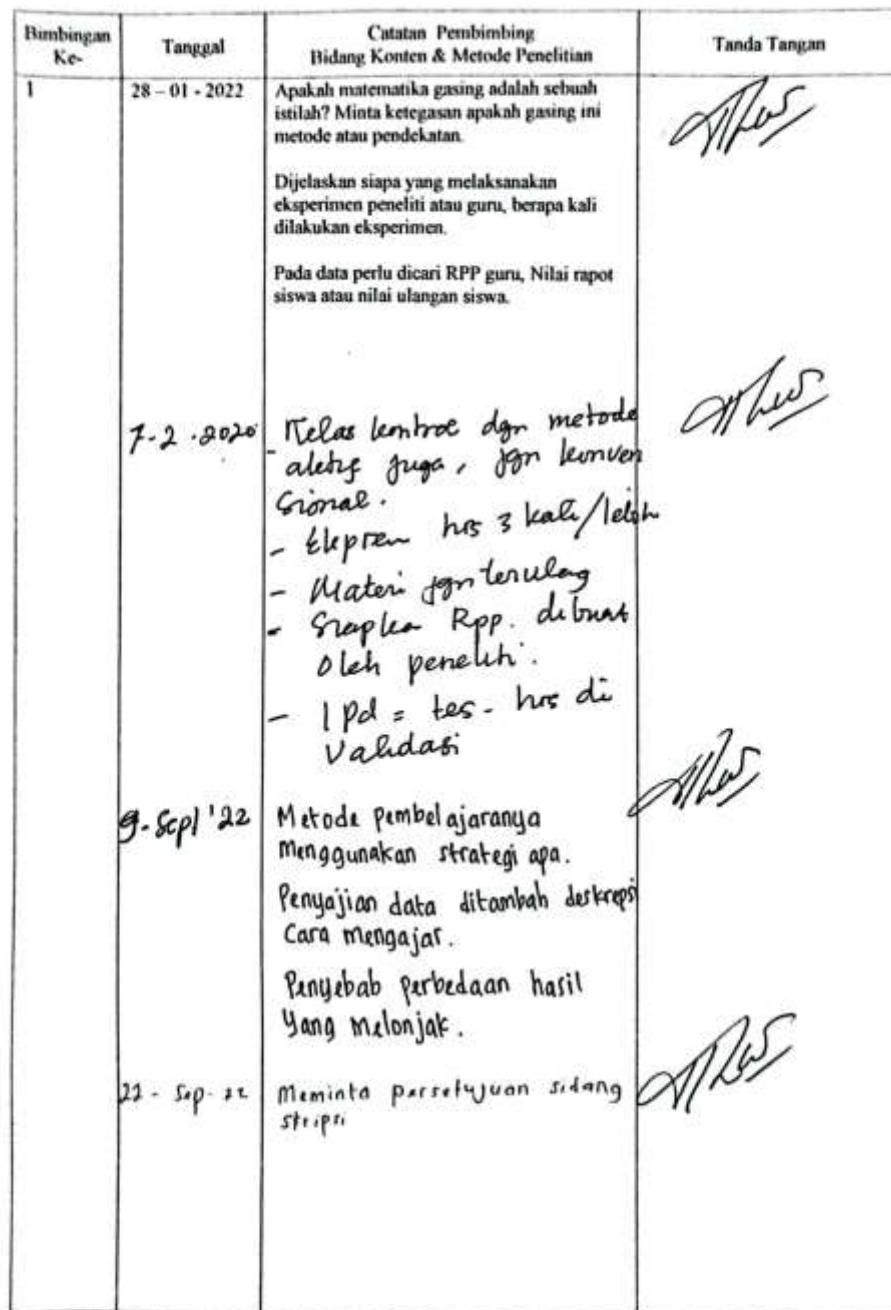 Bimbingan Ke-
Tanggal
Catatan Pembimbing
Bidang Konten & Metode Penelitian
Tanda Tangan
1
28 – 01 - 2022
Apakah matematika gasing adalah sebuah
istilah? Minta ketegasan apakah gasing ini
metode atau pendekatan.
Dijelaskan siapa yang melaksanakan
eksperimen peneliti atau guru, berapa kali
dilakukan eksperimen.
Pada data perlu dicari RPP guru, Nilai rapot
siswa atau nilai ulangan siswa.
7-2-2020
- Kelas kontrol dgn metode
aktif juga, jgn konven
sional.
- hrs 3 kali/lebih
- Materi jgn terulag
- Siapkan Rpp. dibuat
oleh peneliti.
- IPd = tes - hrs di
Validasi
9-Sept'22
Metode pembelajaranya
menggunakan strategi apa.
Penyajian data ditambah deskrepsi
Cara mengajar.
Penyebab perbedaan hasil
Yang melonjak.
22 - Sep - 22
Meminta persetujuan sidang
skripsi